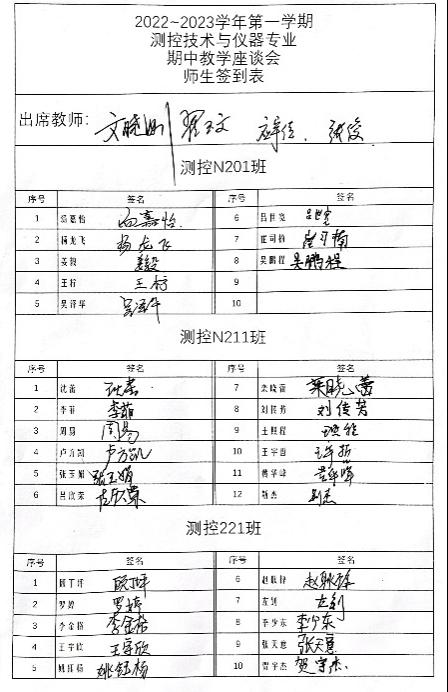 2022~2023学年第一学期
测控技术与仪器专业
期中教学座谈会
师生签到表
出席教师：文晓 翟玉文 张俊
测控N201班
序号 签名 序号 签名
1 嘉怡 嘉怡 6 吕世宽 吕世宽
2 杨龙飞 杨龙飞 7 司楠
3 姜毅 姜毅 8 吴鹏程 吴鹏程
4 王梓 王梓 9
5 吴泽华 吴泽华 10
测控N211班
序号 签名 序号 签名
1 沈蕾 沈蕾 7 栾晓蕾 栾晓蕾
2 李菲 李菲 8 刘传芳 刘传芳
3 周易 周易 9 程
4 卢方凯 卢方凯 10 王宇
5 张玉娟 张玉娟 11 黄华峰 黄华峰
6 吕欣荣 12 杰
测控221班
序号 签名 序号 签名
1 坪 坪 6 赵
2 罗婷 罗婷 7 左钊 左钊
3 李金格 李金格 8 李少东 李少东
4 王宇欣 王宇欣 9 张天意 张天意
5 姚钰杨 姚钰杨 10 贾宇杰 贺宇杰